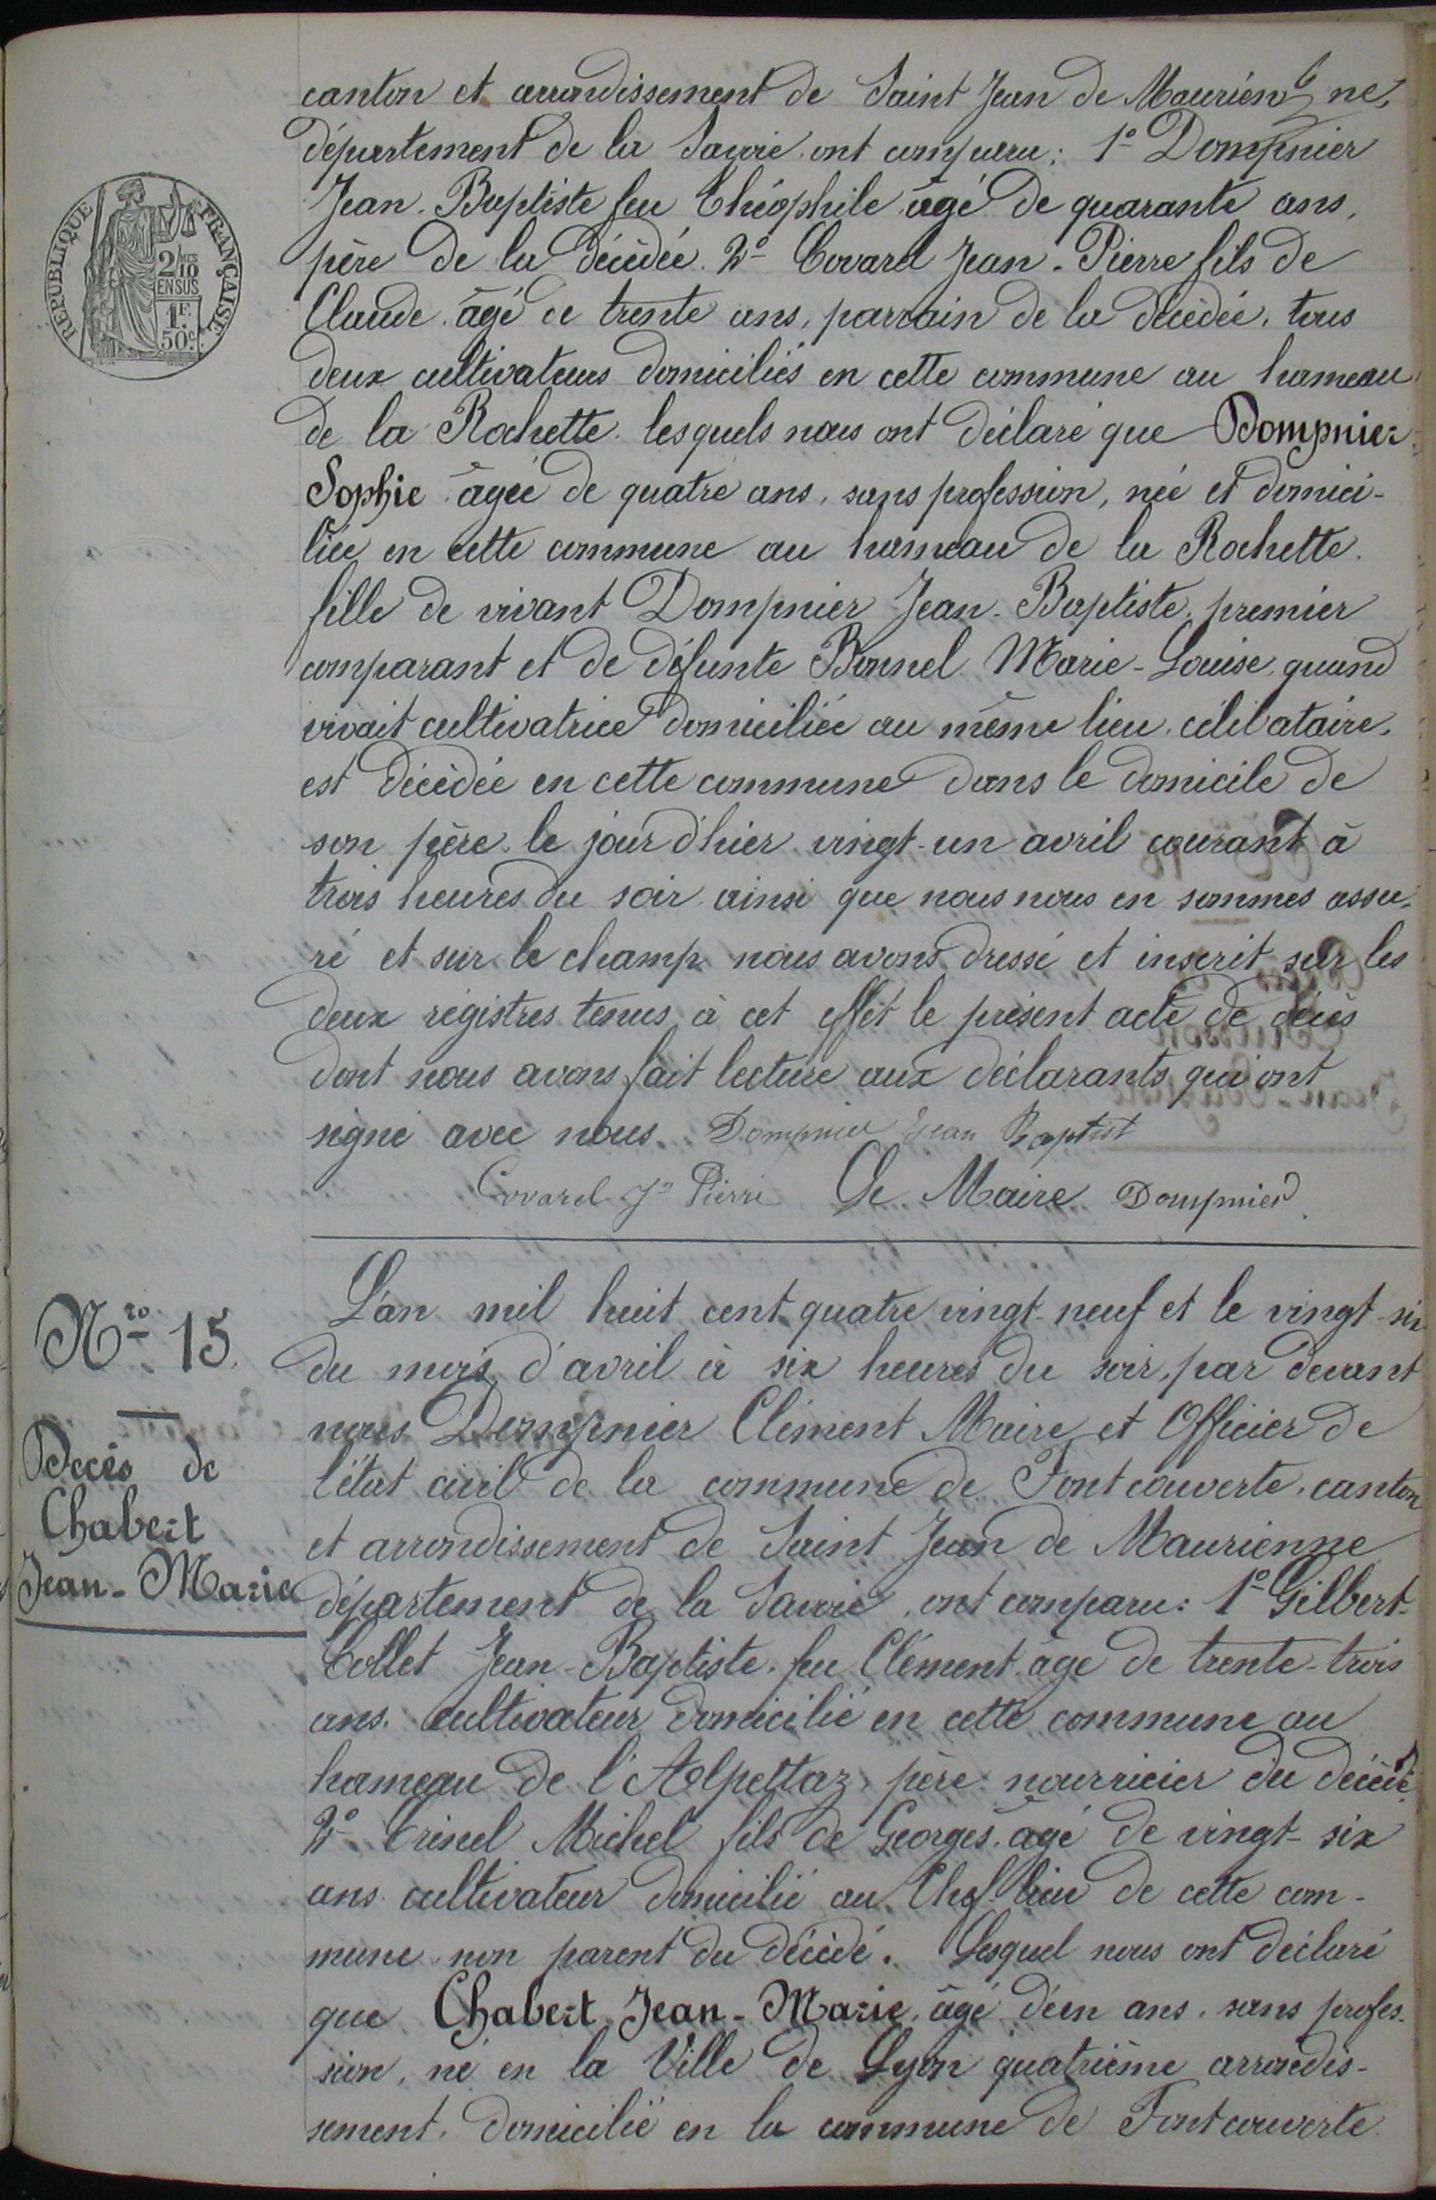 canton et arrondissement de Saint Jean de Maurienne,
département de la Savoie ont comparu: 1° Dompnier
Jean-Baptiste feu Théophile âgé de quarante ans,
père de la décédée. 2° Covarel Jean-Pierre fils de
Claude âgé de trente ans, parrain de la décédée, tous
deux cultivateurs domiciliés en cette commune au hameau
de la Rochette. lesquels nous ont déclaré que Dompnier
Sophie âgée de quatre ans, sans profession, née et domici-
liée en cette commune au hameau de la Rochette.
fille de vivant Dompnier Jean-Baptiste, premier
comparant et de défunte Bonnel Marie-Louise quand
vivait cultivatrice domiciliée au même lieu, célibataire,
est décédée en cette commune dans le domicile de
son père le jour d'hier vingt-un avril courant à
trois heures du soir ainsi que nous nous en sommes assu-
ré et sur le champ nous avons dressé et inscrit sur les
deux régistres tenus à cet effet le présent acte de décès
dont nous avons fait lecture aux déclarants qui ont
signé avec nous. Dompnier Jean Baptist
Covarel Jn Pierre Le Maire Dompnier
REPUBLIQUE FRANÇAISE
2/10 MES
EN SUS
1F.
50c.
Nro 15.
Décès de
Chabert
Jean-Marie
L'an mil huit cent quatre vingt-neuf et le vingt-six
du mois d'avril à six heures du soir, par devant
nous Dompnier Clément Maire et Officier de
l'état civil de la commune de Fontcouverte, canton
et arrondissement de Saint Jean de Maurienne
département de la Savoie, ont comparu: 1° Gilbert-
Collet Jean-Baptiste feu Clément âgé de trente-trois
ans cultivateur domicilié en cette commune au
hameau de l'Alpettaz, père nourricier du décédé
2° Trinel Michel fils de Georges âgé de vingt-six
ans cultivateur domicilié au Chef-lieu de cette com-
mune non parent du décédé. Lesquel nous ont déclaré
que Chabert Jean-Marie, âgé d'un ans, sans profes-
sion, né en la Ville de Lyon quatrième arrondis-
sement, domicilié en la commune de Fontcouverte